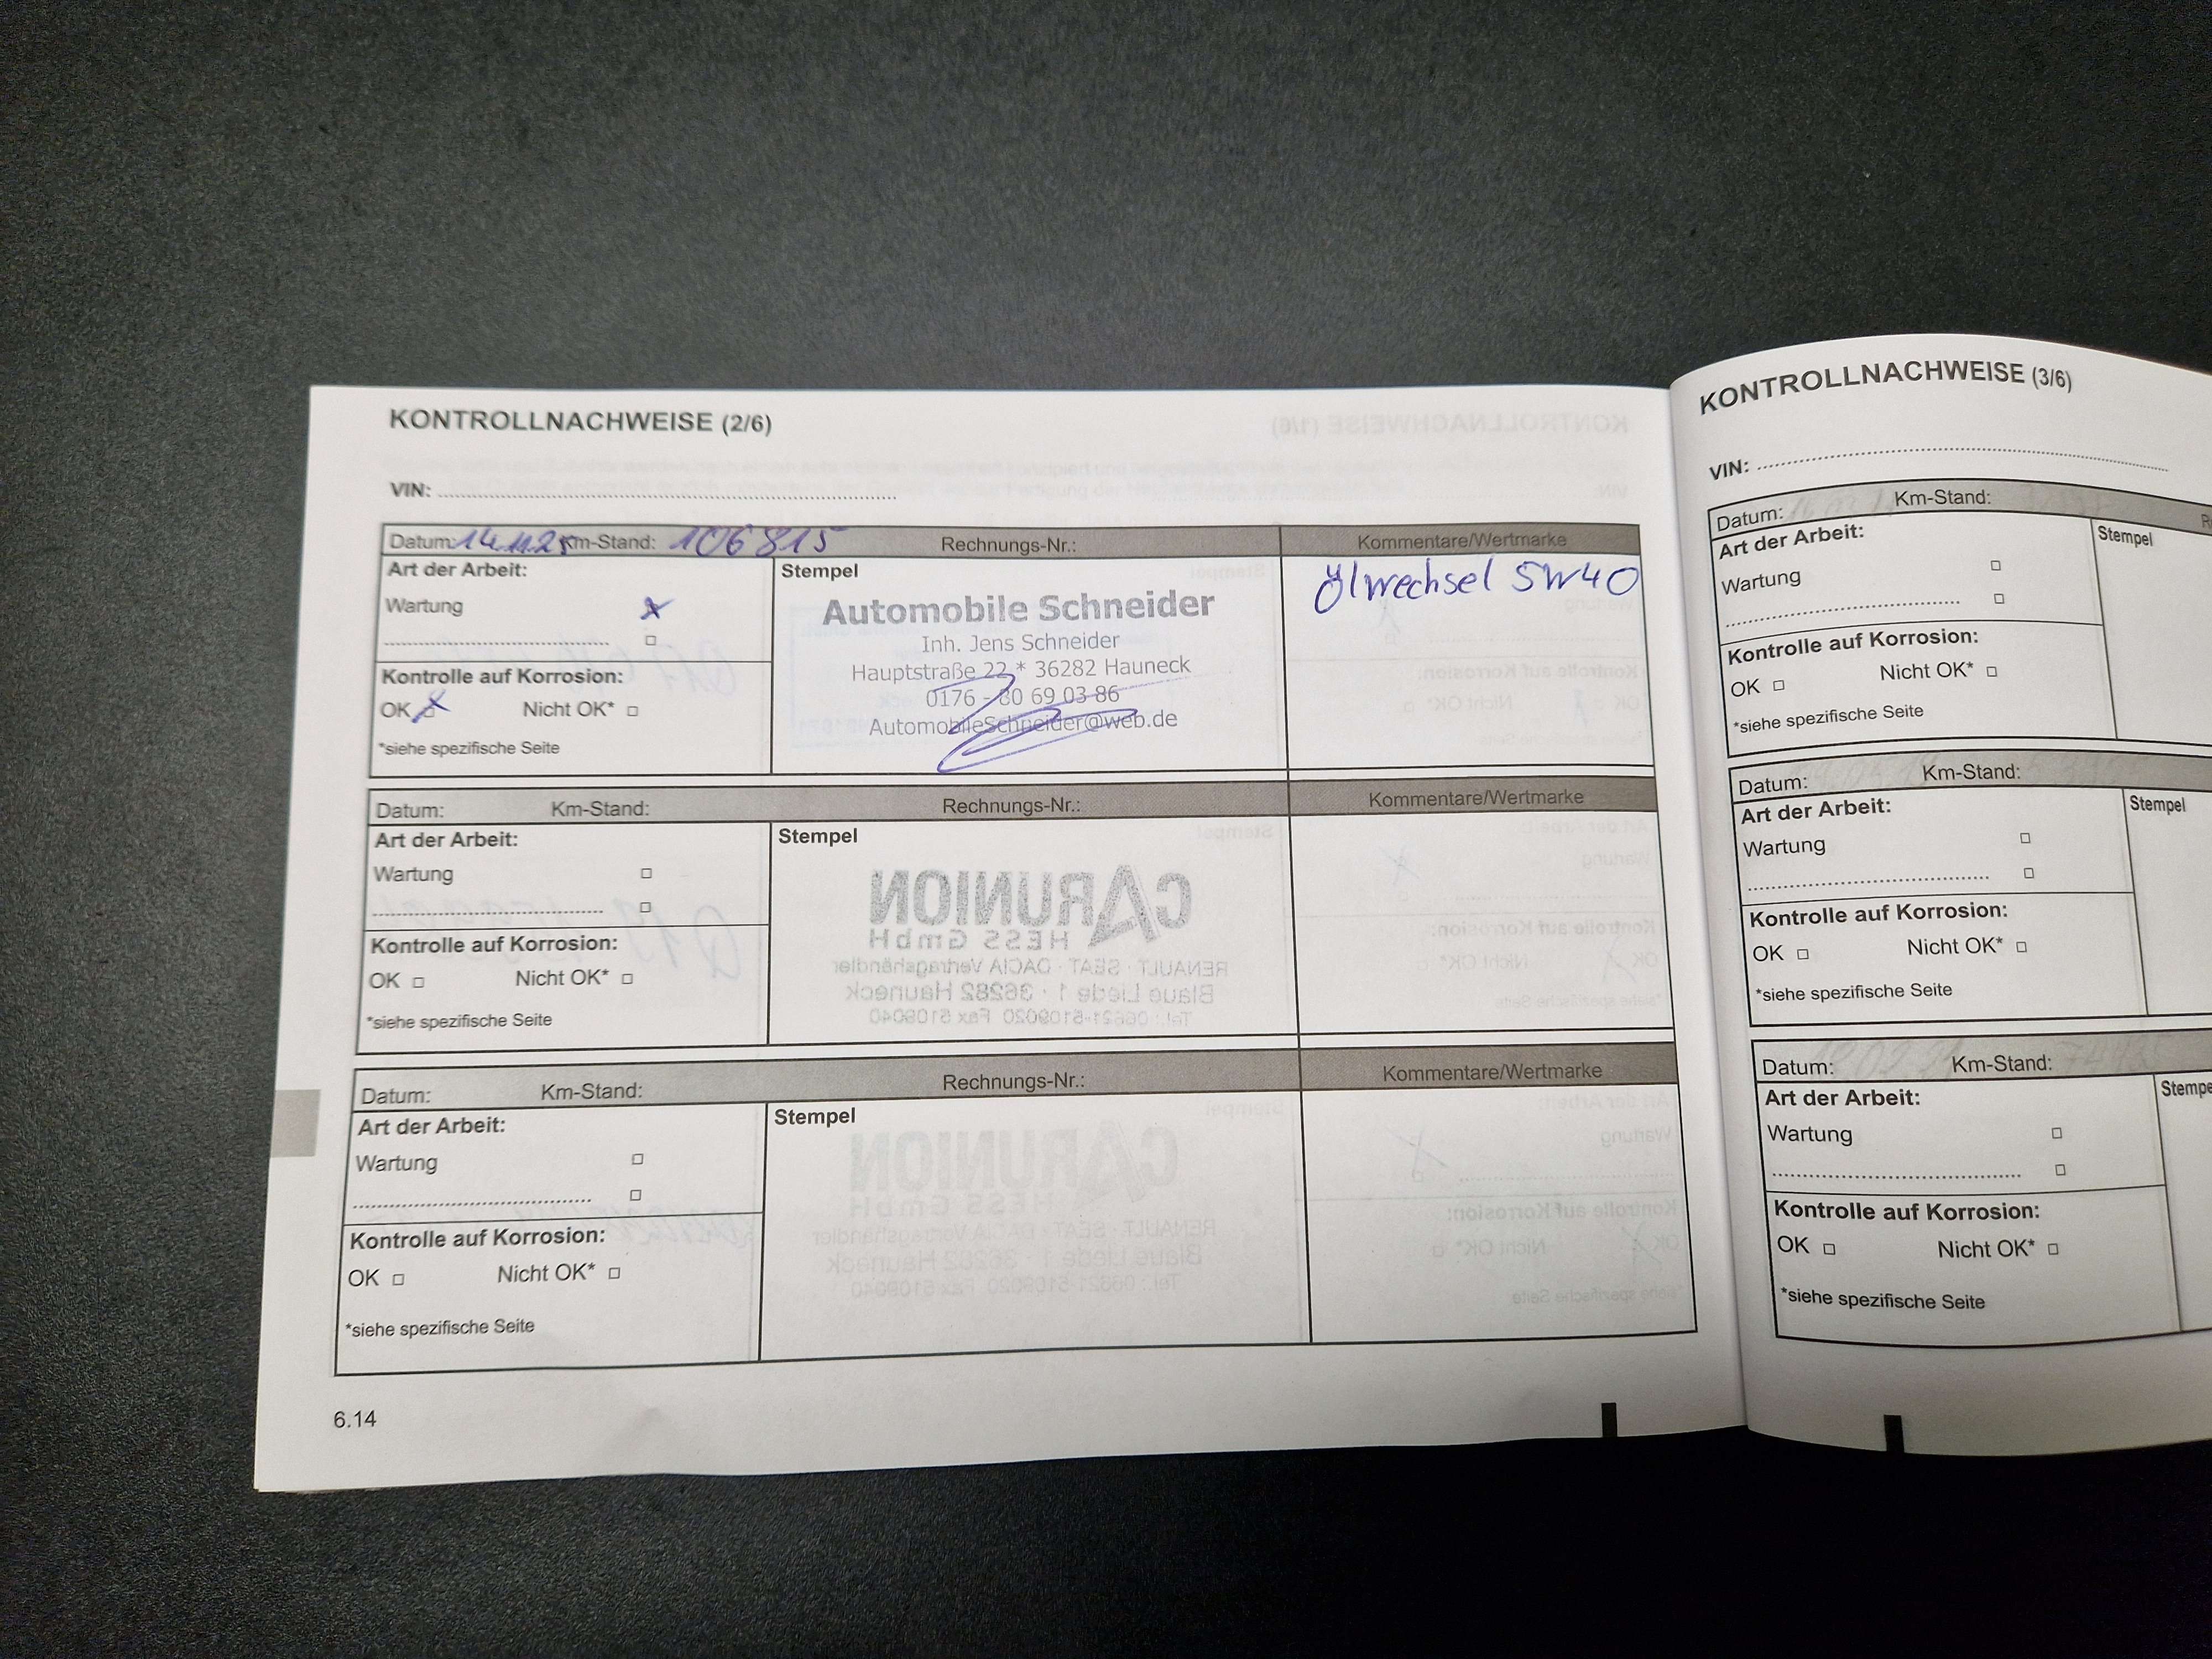 KONTROLLNACHWEISE (2/6)
VIN:
Datum: 14.11.25 Km-Stand: 106815 Rechnungs-Nr.: Kommentare/Wertmarke
Art der Arbeit:
Wartung
Kontrolle auf Korrosion:
OK Nicht OK*
*siehe spezifische Seite
Stempel
Automobile Schneider
Inh. Jens Schneider
Hauptstraße 22 * 36282 Hauneck
0176 - 80 69 03 86
AutomobileSchneider@web.de
Ölwechsel 5W40
Datum: Km-Stand: Rechnungs-Nr.: Kommentare/Wertmarke
Art der Arbeit:
Wartung
Kontrolle auf Korrosion:
OK Nicht OK*
*siehe spezifische Seite
Stempel
CARUNION
HESS GmbH
RENAULT · SEAT · DACIA Vertragshändler
Blaue Liede 1 · 36282 Hauneck
Tel.: 06621-5109020 Fax 5109040
Datum: Km-Stand: Rechnungs-Nr.: Kommentare/Wertmarke
Art der Arbeit:
Wartung
Kontrolle auf Korrosion:
OK Nicht OK*
*siehe spezifische Seite
Stempel
CARUNION
HESS GmbH
RENAULT · SEAT · DACIA Vertragshändler
Blaue Liede 1 · 36282 Hauneck
Tel.: 06621-5109020 Fax 5109040
6.14
KONTROLLNACHWEISE (3/6)
VIN:
Datum: Km-Stand:
Art der Arbeit:
Wartung
Kontrolle auf Korrosion:
OK Nicht OK*
*siehe spezifische Seite
Stempel
Datum: Km-Stand:
Art der Arbeit:
Wartung
Kontrolle auf Korrosion:
OK Nicht OK*
*siehe spezifische Seite
Stempel
Datum: Km-Stand:
Art der Arbeit:
Wartung
Kontrolle auf Korrosion:
OK Nicht OK*
*siehe spezifische Seite